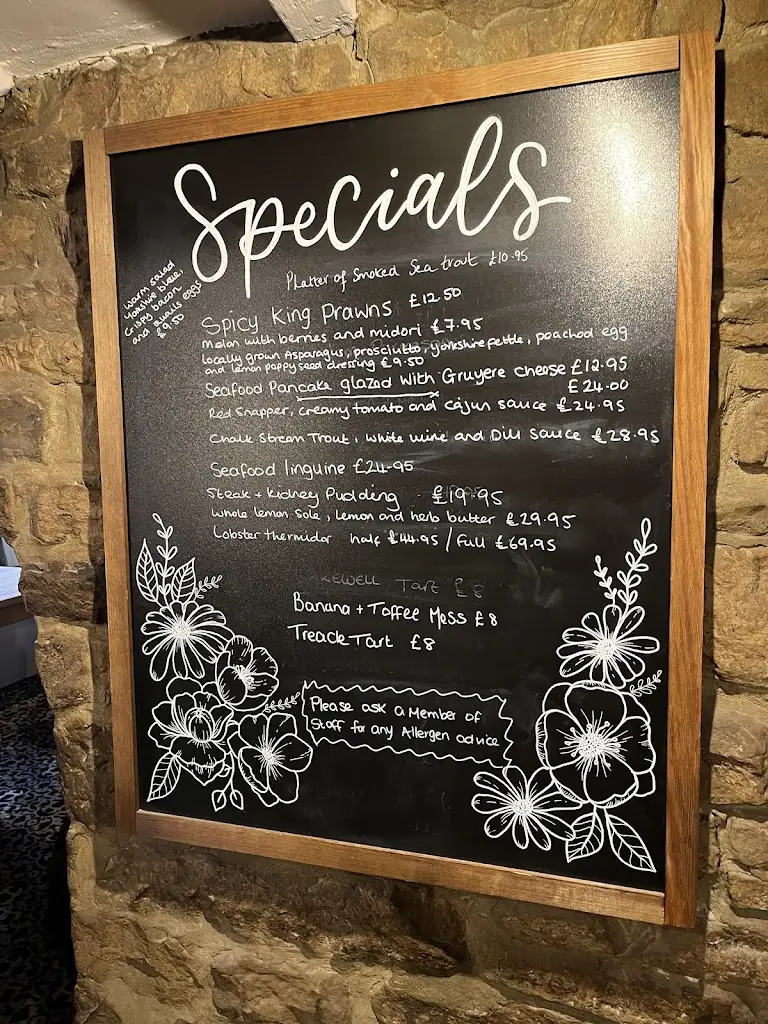 Specials
warm salad
Yorkshire blue,
crispy bacon
and quails eggs
£9.50
Platter of Smoked Sea trout £10.95
Spicy King Prawns £12.50
melon with berries and midori £7.95
locally grown Asparagus, prosciutto, yorkshire fettle, poached egg
and lemon poppy seed dressing £9.50
Seafood Pancake glazed with Gruyere cheese £12.95
£24.00
Red Snapper, creamy tomato and cajun sauce £24.95
Chalk Stream Trout, white wine and Dill sauce £28.95
Seafood linguine £24.95
Steak + Kidney Pudding £19.95
whole lemon Sole, lemon and herb butter £29.95
Lobster thermidor half £44.95 / Full £69.95
Tart £8
Banana + Toffee Mess £8
Treacle Tart £8
Please ask a Member of
Staff for any Allergen advice